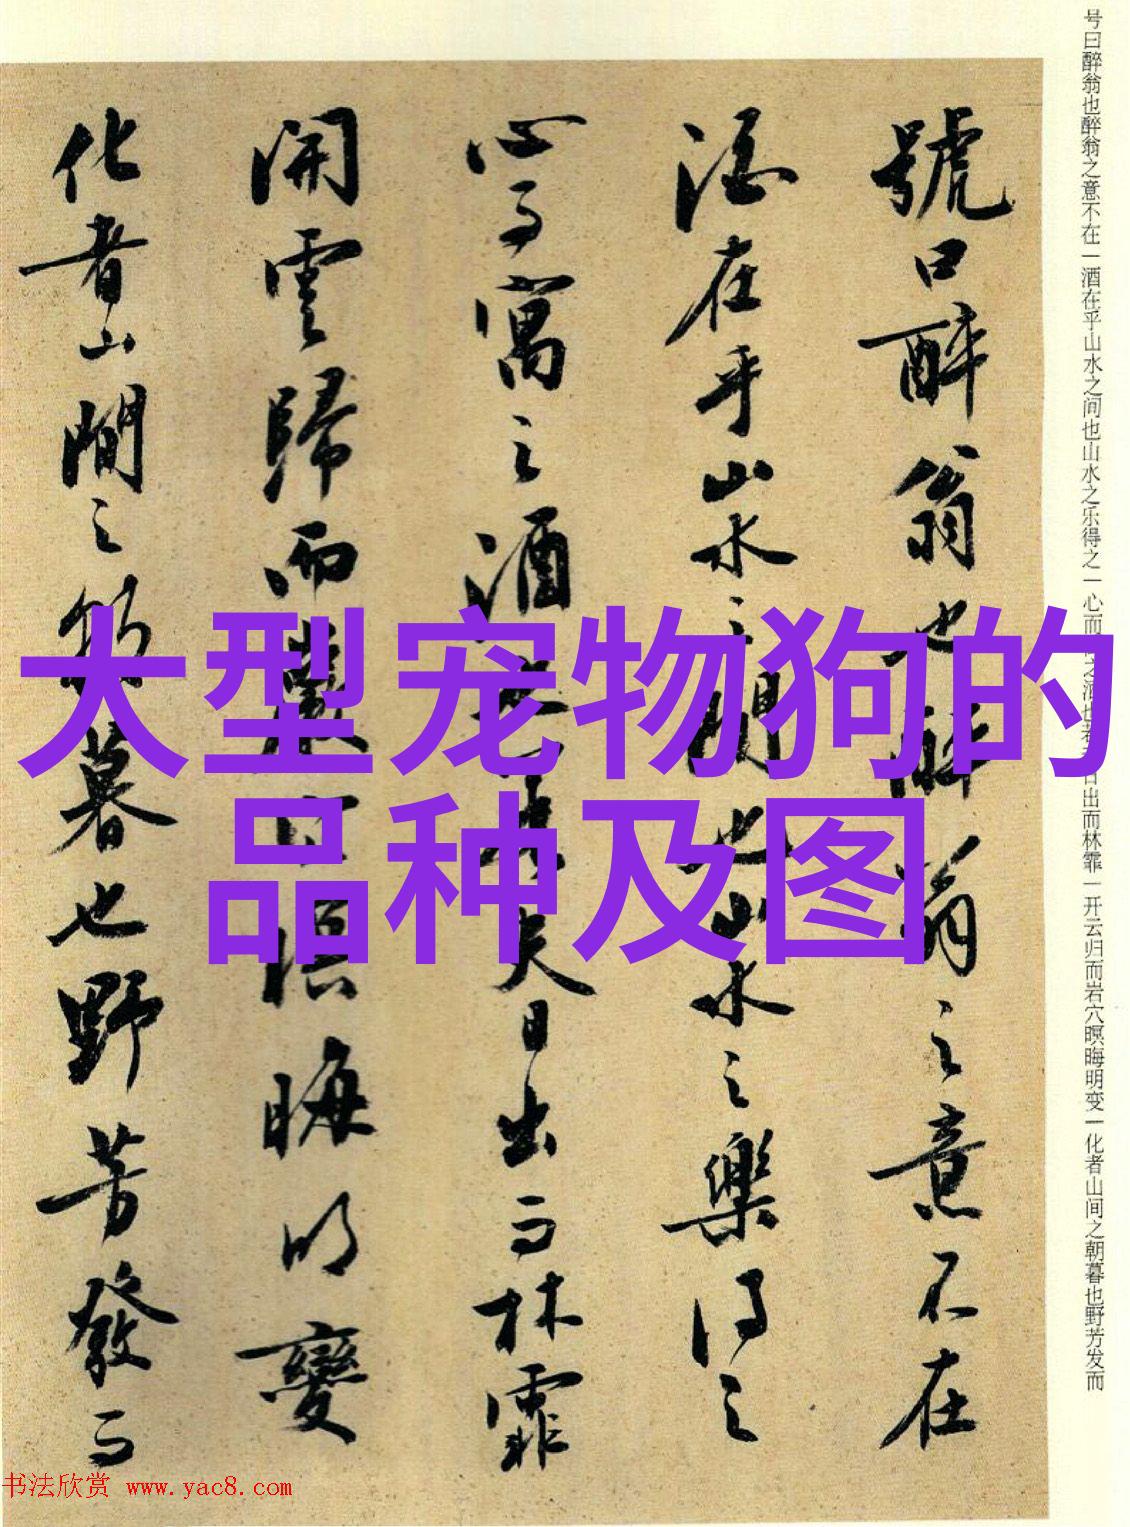 号曰醉翁也醉翁之意不在一酒在乎山水之间也山水之乐得之一心而之酒也若日出而林霏一开云归而岩穴暝晦明变一化者山间之朝暮也野芳发而
號曰醉翁也醉翁之意不在
酒在乎山水之間也山水之樂得之
心而寓之酒也夫日出而林霏
開雲歸而暝晦明變
化者山間之朝暮也野芳發而
大型宠物狗的
品种及图
书法欣赏 www.yac8.com